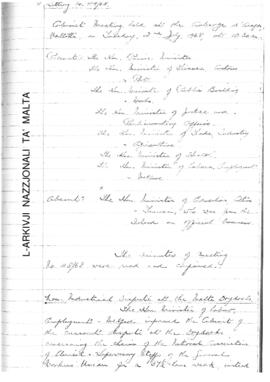 Cabinet Meeting held at the Auberge d'Aragon,
Valletta on Tuesday, 2nd July 1968, at 10.30 a.m.
Present: The Hon. Prime Minister
The Hon. Minister of
The Hon. Minister of Public Building
Works
The Hon. Minister of Justice and
Parliamentary Affairs
The Hon. Minister of Trade, Industry
Agriculture
The Hon. Minister of Health
The Hon. Minister of Labour, Employment
Welfare
Absent: The Hon. Minister of Education, Culture
Tourism, who was from the
Island on official business
The Minutes of Meeting
No. 118/68 were read and confirmed.
Industrial Dispute at the Malta Drydocks
The Hon. Minister of Labour,
Employment Welfare, informed the Cabinet of
the current dispute at the Drydocks
concerning the claim of the National Executive
of Clerical Supervisory Staff of the General
Workers Union for a week, which
L-ARKIVJI NAZZJONALI TA' MALTA